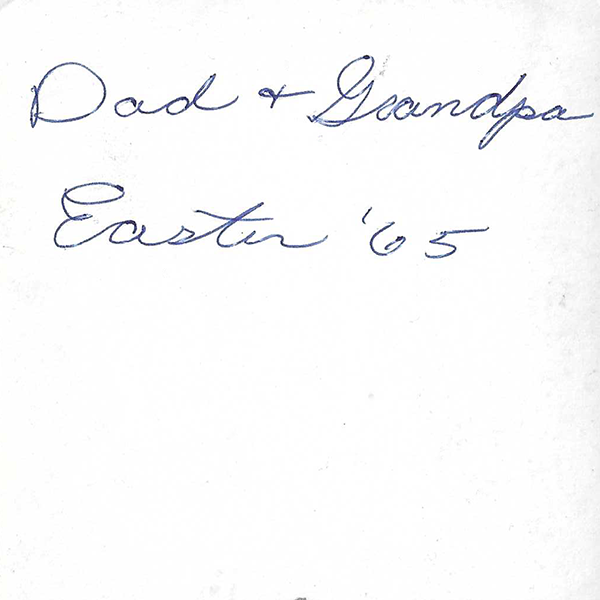 Dad + Grandpa
Easter '65